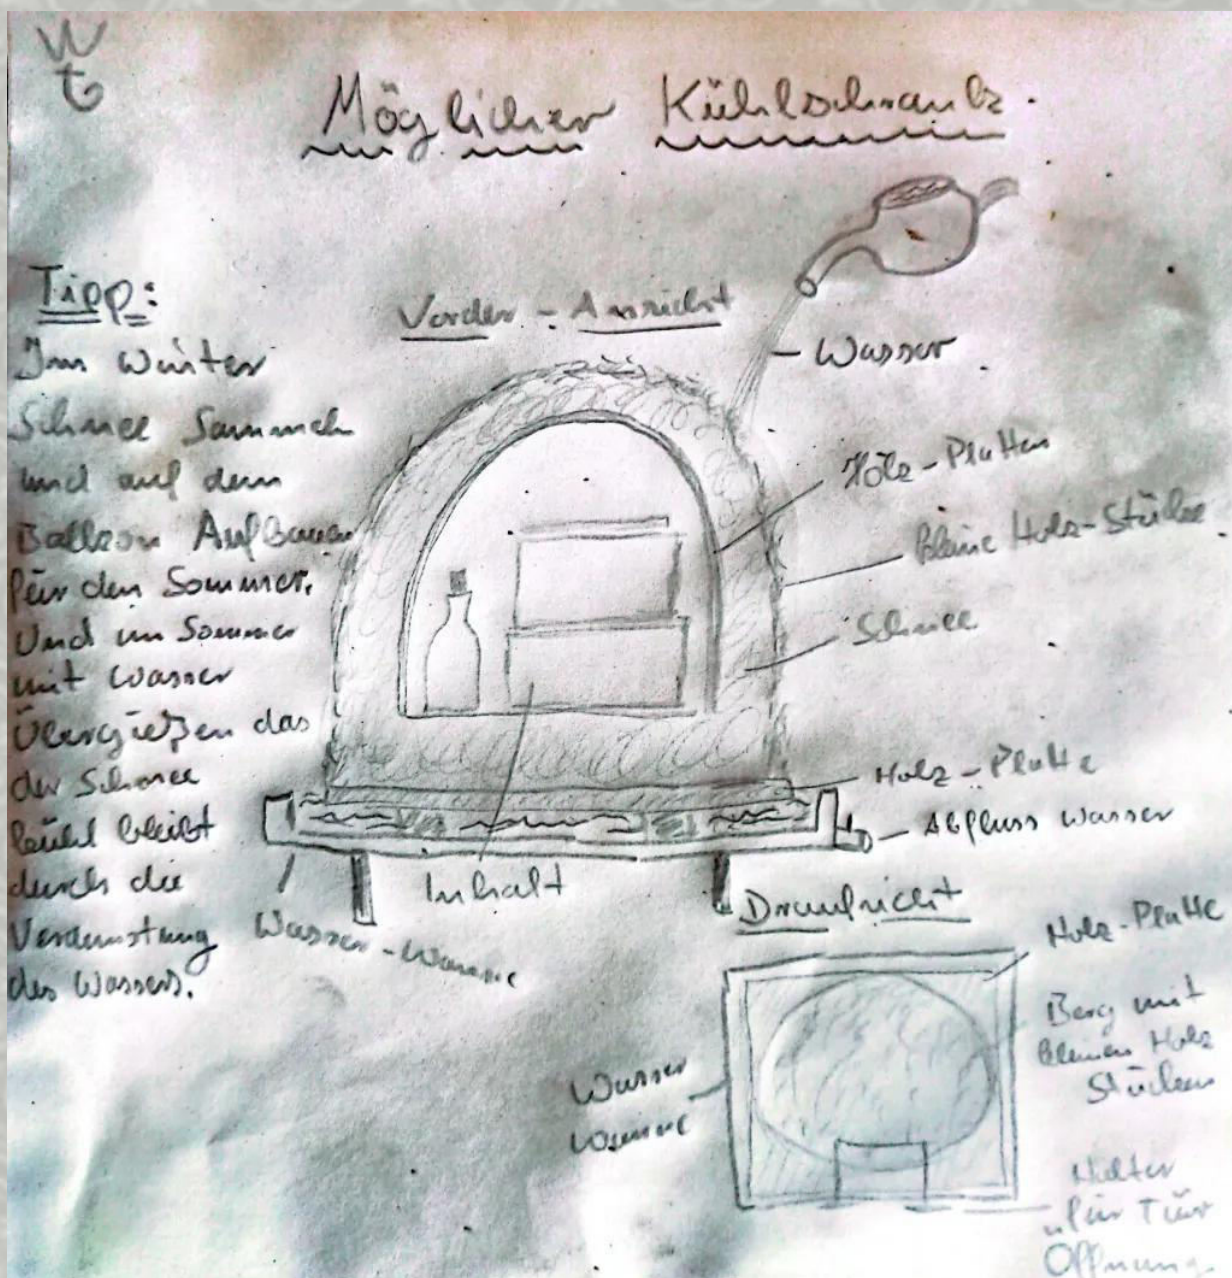 W
t
Möglicher Kühlschrank.
Tipp:
Im Winter
Schnee Sammeln
und auf dem
Balkon Aufbauen
für den Sommer.
Und im Sommer
mit Wasser
Übergießen das
der Schnee
kühl bleibt
durch die
Verdunstung
des Wassers.
Vorder-Ansicht
Wasser
Holz-Platten
kleine Holz-Stücke
Schnee
Holz-Platte
Abfluss Wasser
Inhalt
Wasser-Wanne
Draufsicht
Holz-Platte
Berg mit
kleinen Holz
Stücken
Wasser
wanne
für Tür
Öffnung